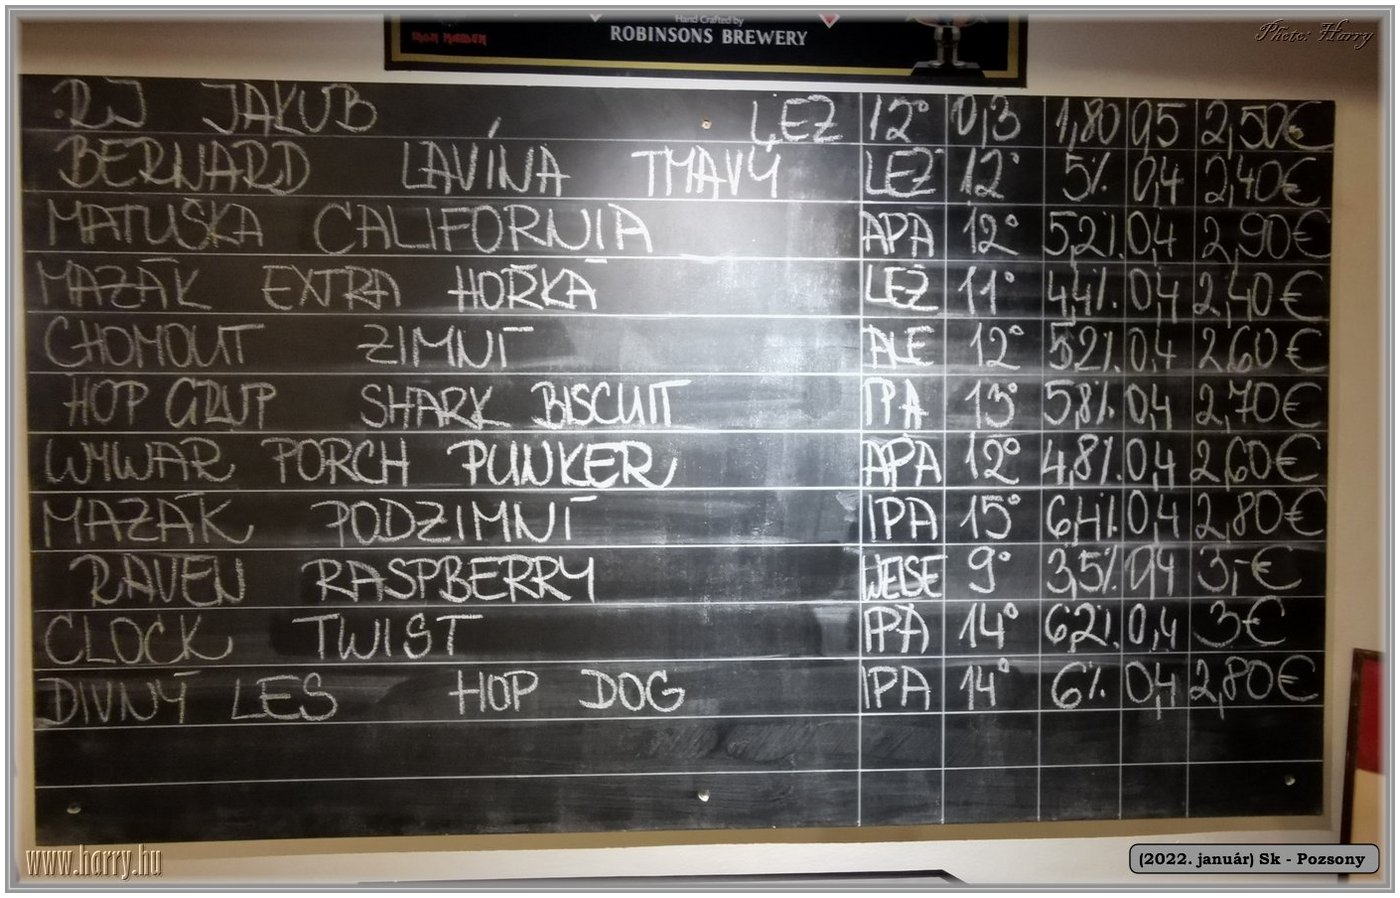 Hand Crafted by
ROBINSONS BREWERY
IRON MAIDEN
Photo: Harry
RJ JAKUB LEŽ 12° 0,3 1,80 0,5 2,50€
BERNARD LAVÍNA TMAVÝ LEŽ 12° 5% 0,4 2,40€
MATUŠKA CALIFORNIA APA 12° 5,2% 0,4 2,90€
MAZÁK EXTRA HOŘKÁ LEŽ 11° 4,4% 0,4 2,40€
CHOMOUT ZIMNÍ ALE 12° 5,2% 0,4 2,60€
HOP GRUP SHARK BISCUIT IPA 13° 5,8% 0,4 2,70€
WYWAR PORCH PUNKER APA 12° 4,8% 0,4 2,60€
MAZÁK PODZIMNÍ IPA 15° 6,4% 0,4 2,80€
RAVEN RASPBERRY WEISE 9° 3,5% 0,4 3,-€
CLOCK TWIST IPA 14° 6,2% 0,4 3€
DIVNÝ LES HOP DOG IPA 14° 6% 0,4 2,80€
www.harry.hu
(2022. január) Sk - Pozsony